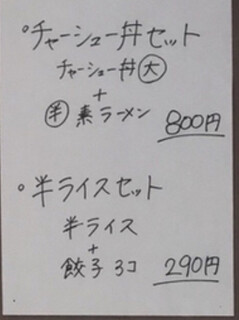 °チャーシュー丼セット
チャーシュー丼 大
+
半 素ラーメン
800円
°半ライスセット
半ライス
+
餃子 3コ 290円